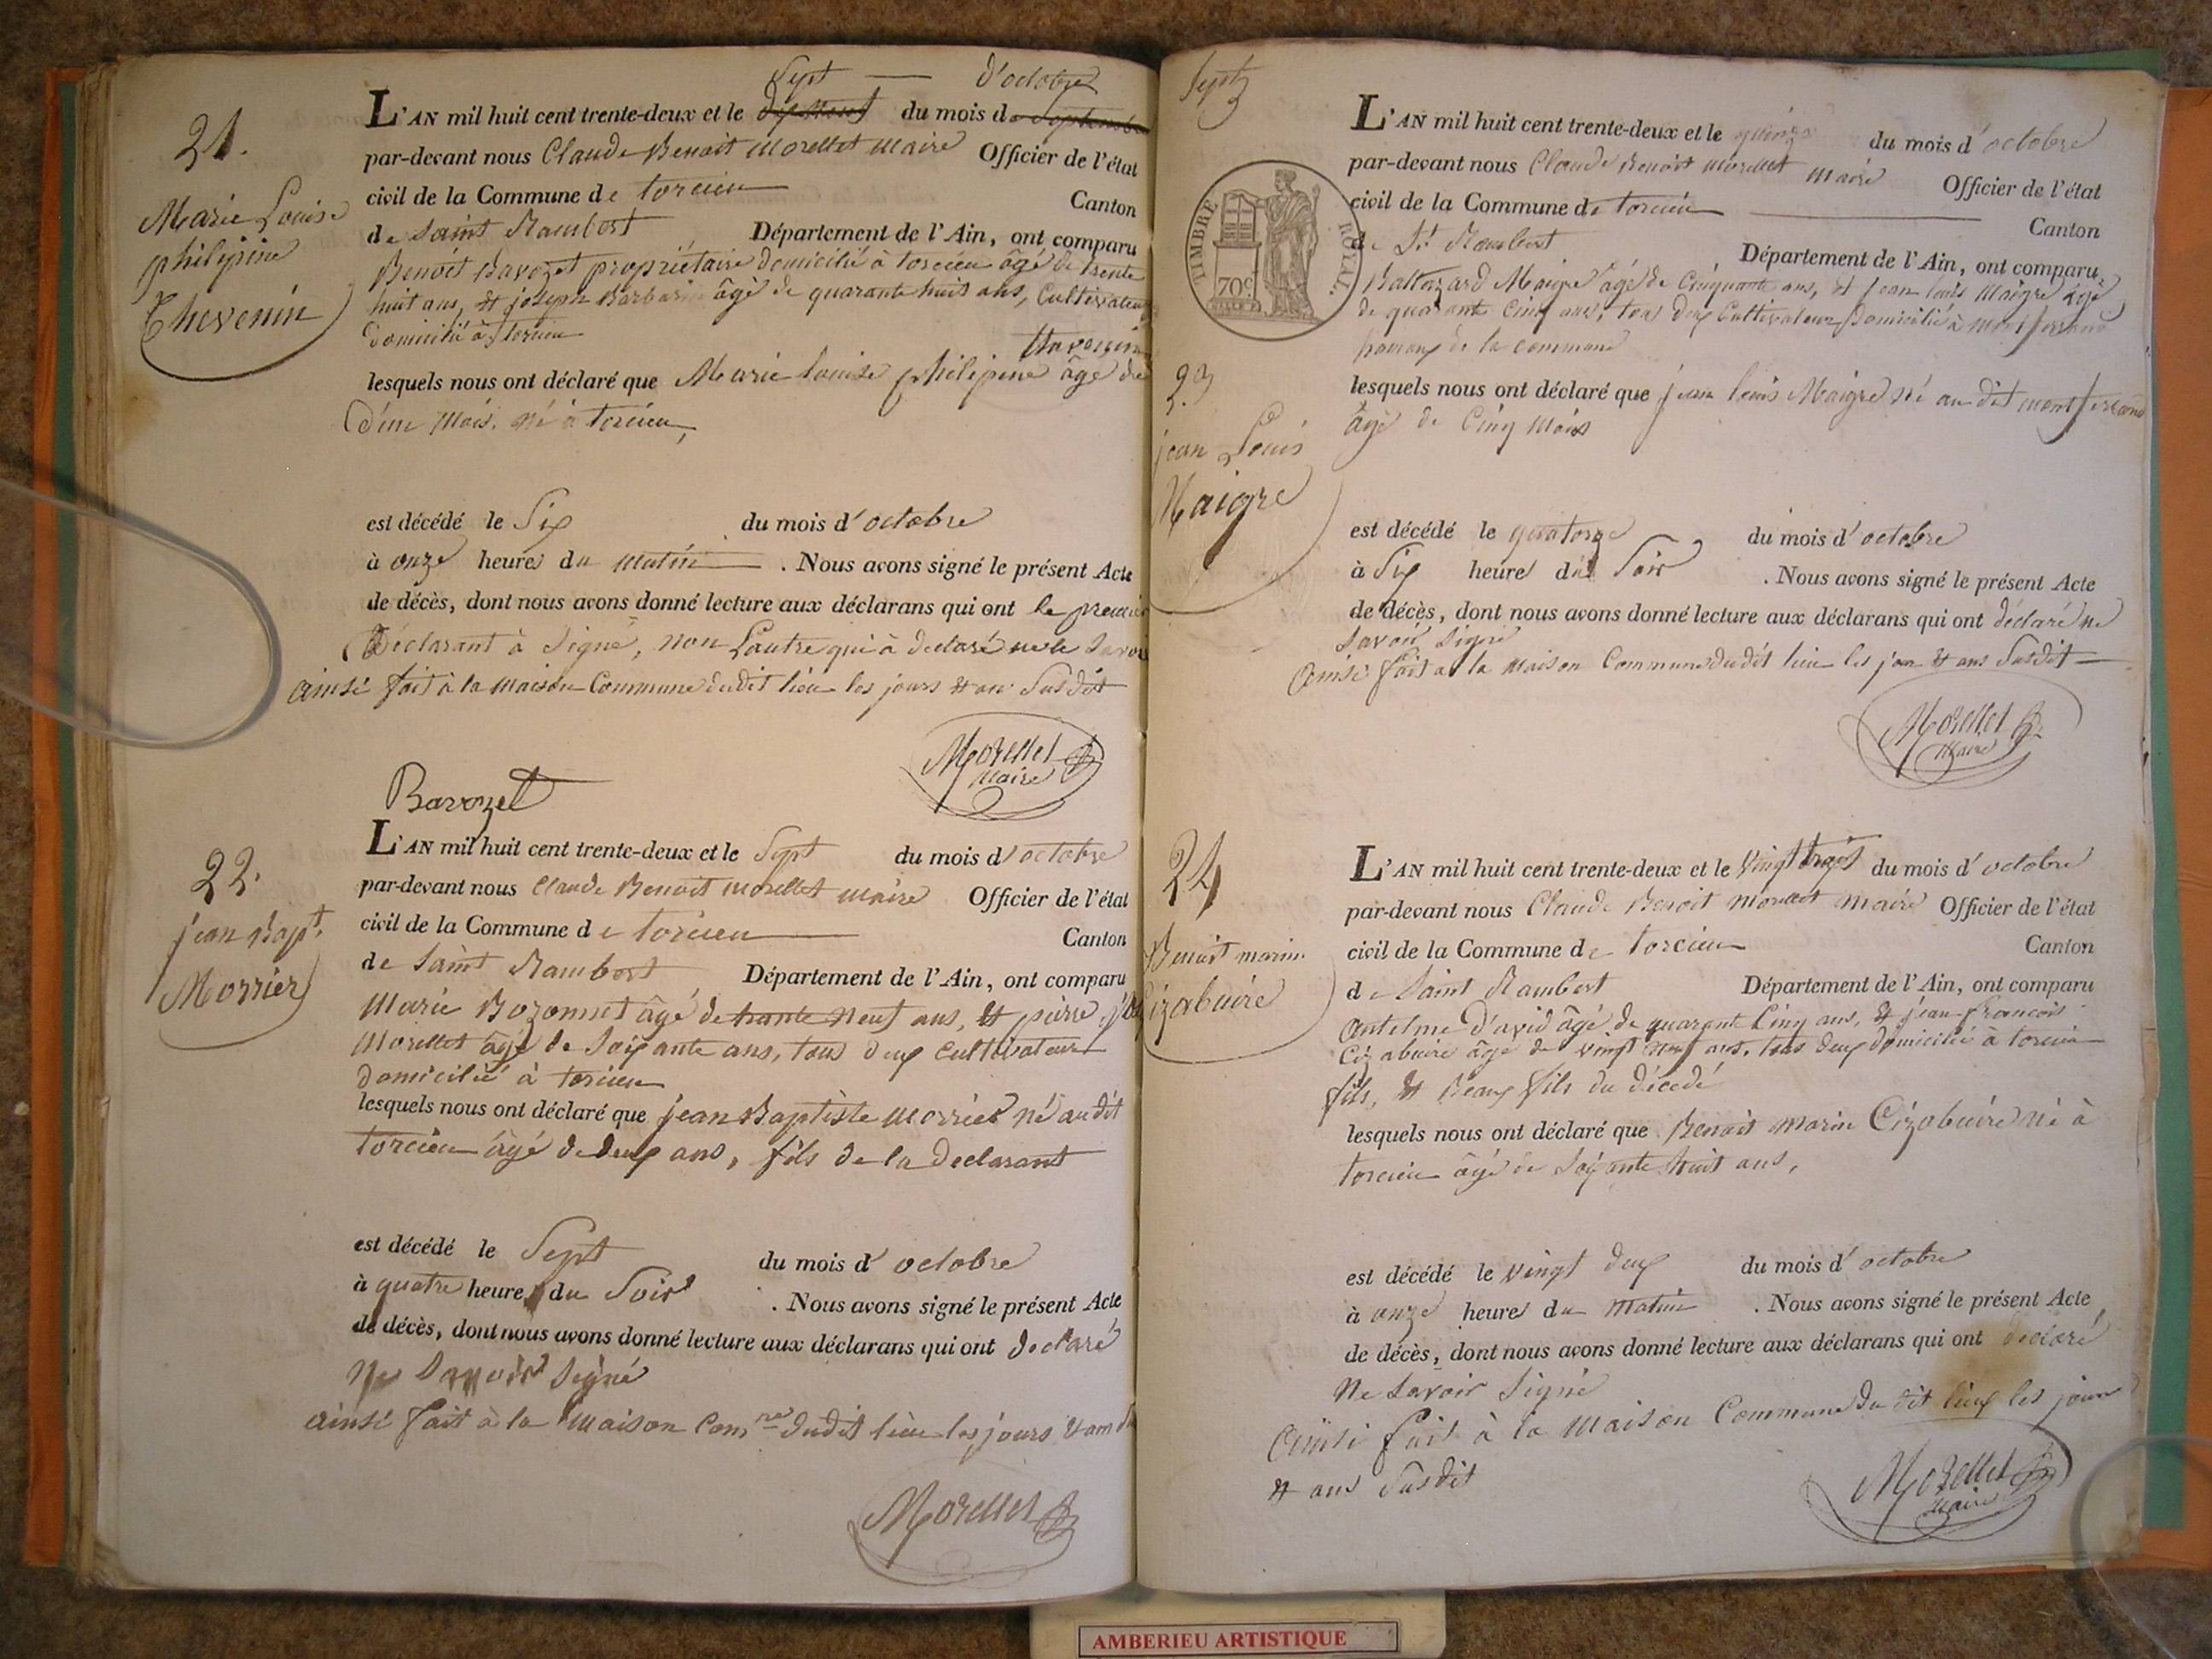 Sept — d'octobre
21.
L'AN mil huit cent trente-deux et le dix neuf du mois de Septembre
par-devant nous Claude Benoit Morellet Maire Officier de l'état
civil de la Commune de torcieu
Canton
de Saint Rambert Département de l'Ain, ont comparu
Marie Louise
philipine
Thevenin
Benoit Bavozet propriétaire domicilié à torcieu âgé de trente
huit ans, et joseph Barbarin âgé de quarante huit ans, Cultivateur
Domicilié à torcieu
lesquels nous ont déclaré que Marie louise philipine âgé de
d'un Mois, né à torcieu,
est décédé le Six du mois d'octobre
à onze heures du matin . Nous avons signé le présent Acte
de décès, dont nous avons donné lecture aux déclarans qui ont le premier
Déclarant à Signé, non L'autre qui à declaré ne le Savoir
ainsi fait à la maison Commune dudit lieu les jours et an Susdit
Morellet
Maire
Bavozet
22.
jean Bapt.
Morrier
L'AN mil huit cent trente-deux et le Sept du mois d'octobre
par-devant nous Claude Benoit Morellet Maire Officier de l'état
civil de la Commune de torcieu
Canton
de Saint Rambert Département de l'Ain, ont comparu
Marie Bozonnet âgé de trante neuf ans, et pierre
Morellet âgé de Soixante ans, tous deux Cultivateur
domicilié à torcieu
lesquels nous ont déclaré que jean Baptiste Morrier né audit
torcieu âgé de deux ans, fils de la declarant
est décédé le Sept du mois d'octobre
à quatre heures du Soir . Nous avons signé le présent Acte
de décès, dont nous avons donné lecture aux déclarans qui ont déclaré
Ne Savoir Signé
ainsi fait à la Maison Comne dudit lieu les jours et an
Morellet
Sept
L'AN mil huit cent trente-deux et le quinze du mois d'octobre
par-devant nous Claude Benoit Morellet Maire Officier de l'état
civil de la Commune de torcieu
Canton
de St Rambert Département de l'Ain, ont comparu
TIMBRE ROYAL.
70c
Baltazard Maigre âgé de Cinquante ans, et jean louis Maigre âgé
de quarante Cinq ans, tous deux Cultivateur domicilié à montferrand
hameaux de la commune
23
jean Louis
Maigre
lesquels nous ont déclaré que jean louis Maigre né au dit montferrand
âgé de Cinq Mois
est décédé le quatorze du mois d'octobre
à Six heures du Soir . Nous avons signé le présent Acte
de décès, dont nous avons donné lecture aux déclarans qui ont déclaré ne
Savoir Signé
ainsi fait à la Maison Commune dudit lieu les jour et ans Susdit
Morellet
Maire
24
Benoit marin
Cizabuire
L'AN mil huit cent trente-deux et le Vingt trois du mois d'octobre
par-devant nous Claude Benoit Morellet Maire Officier de l'état
civil de la Commune de torcieu
Canton
de Saint Rambert Département de l'Ain, ont comparu
Antelme David âgé de quarante Cinq ans, et jean francois
Cizabuire âgé de vingt neuf ans, tous deux domicilié à torcieu
fils, et Beaux fils du décédé
lesquels nous ont déclaré que Benoit Marin Cizabuire né à
torcieu âgé de Soixante huit ans,
est décédé le vingt deux du mois d'octobre
à onze heures du Matin . Nous avons signé le présent Acte
de décès, dont nous avons donné lecture aux déclarans qui ont déclaré
Ne Savoir Signé
ainsi fait à la Maison Commune du dit lieux les jour
et ans Susdit
Morellet
Maire
AMBERIEU ARTISTIQUE